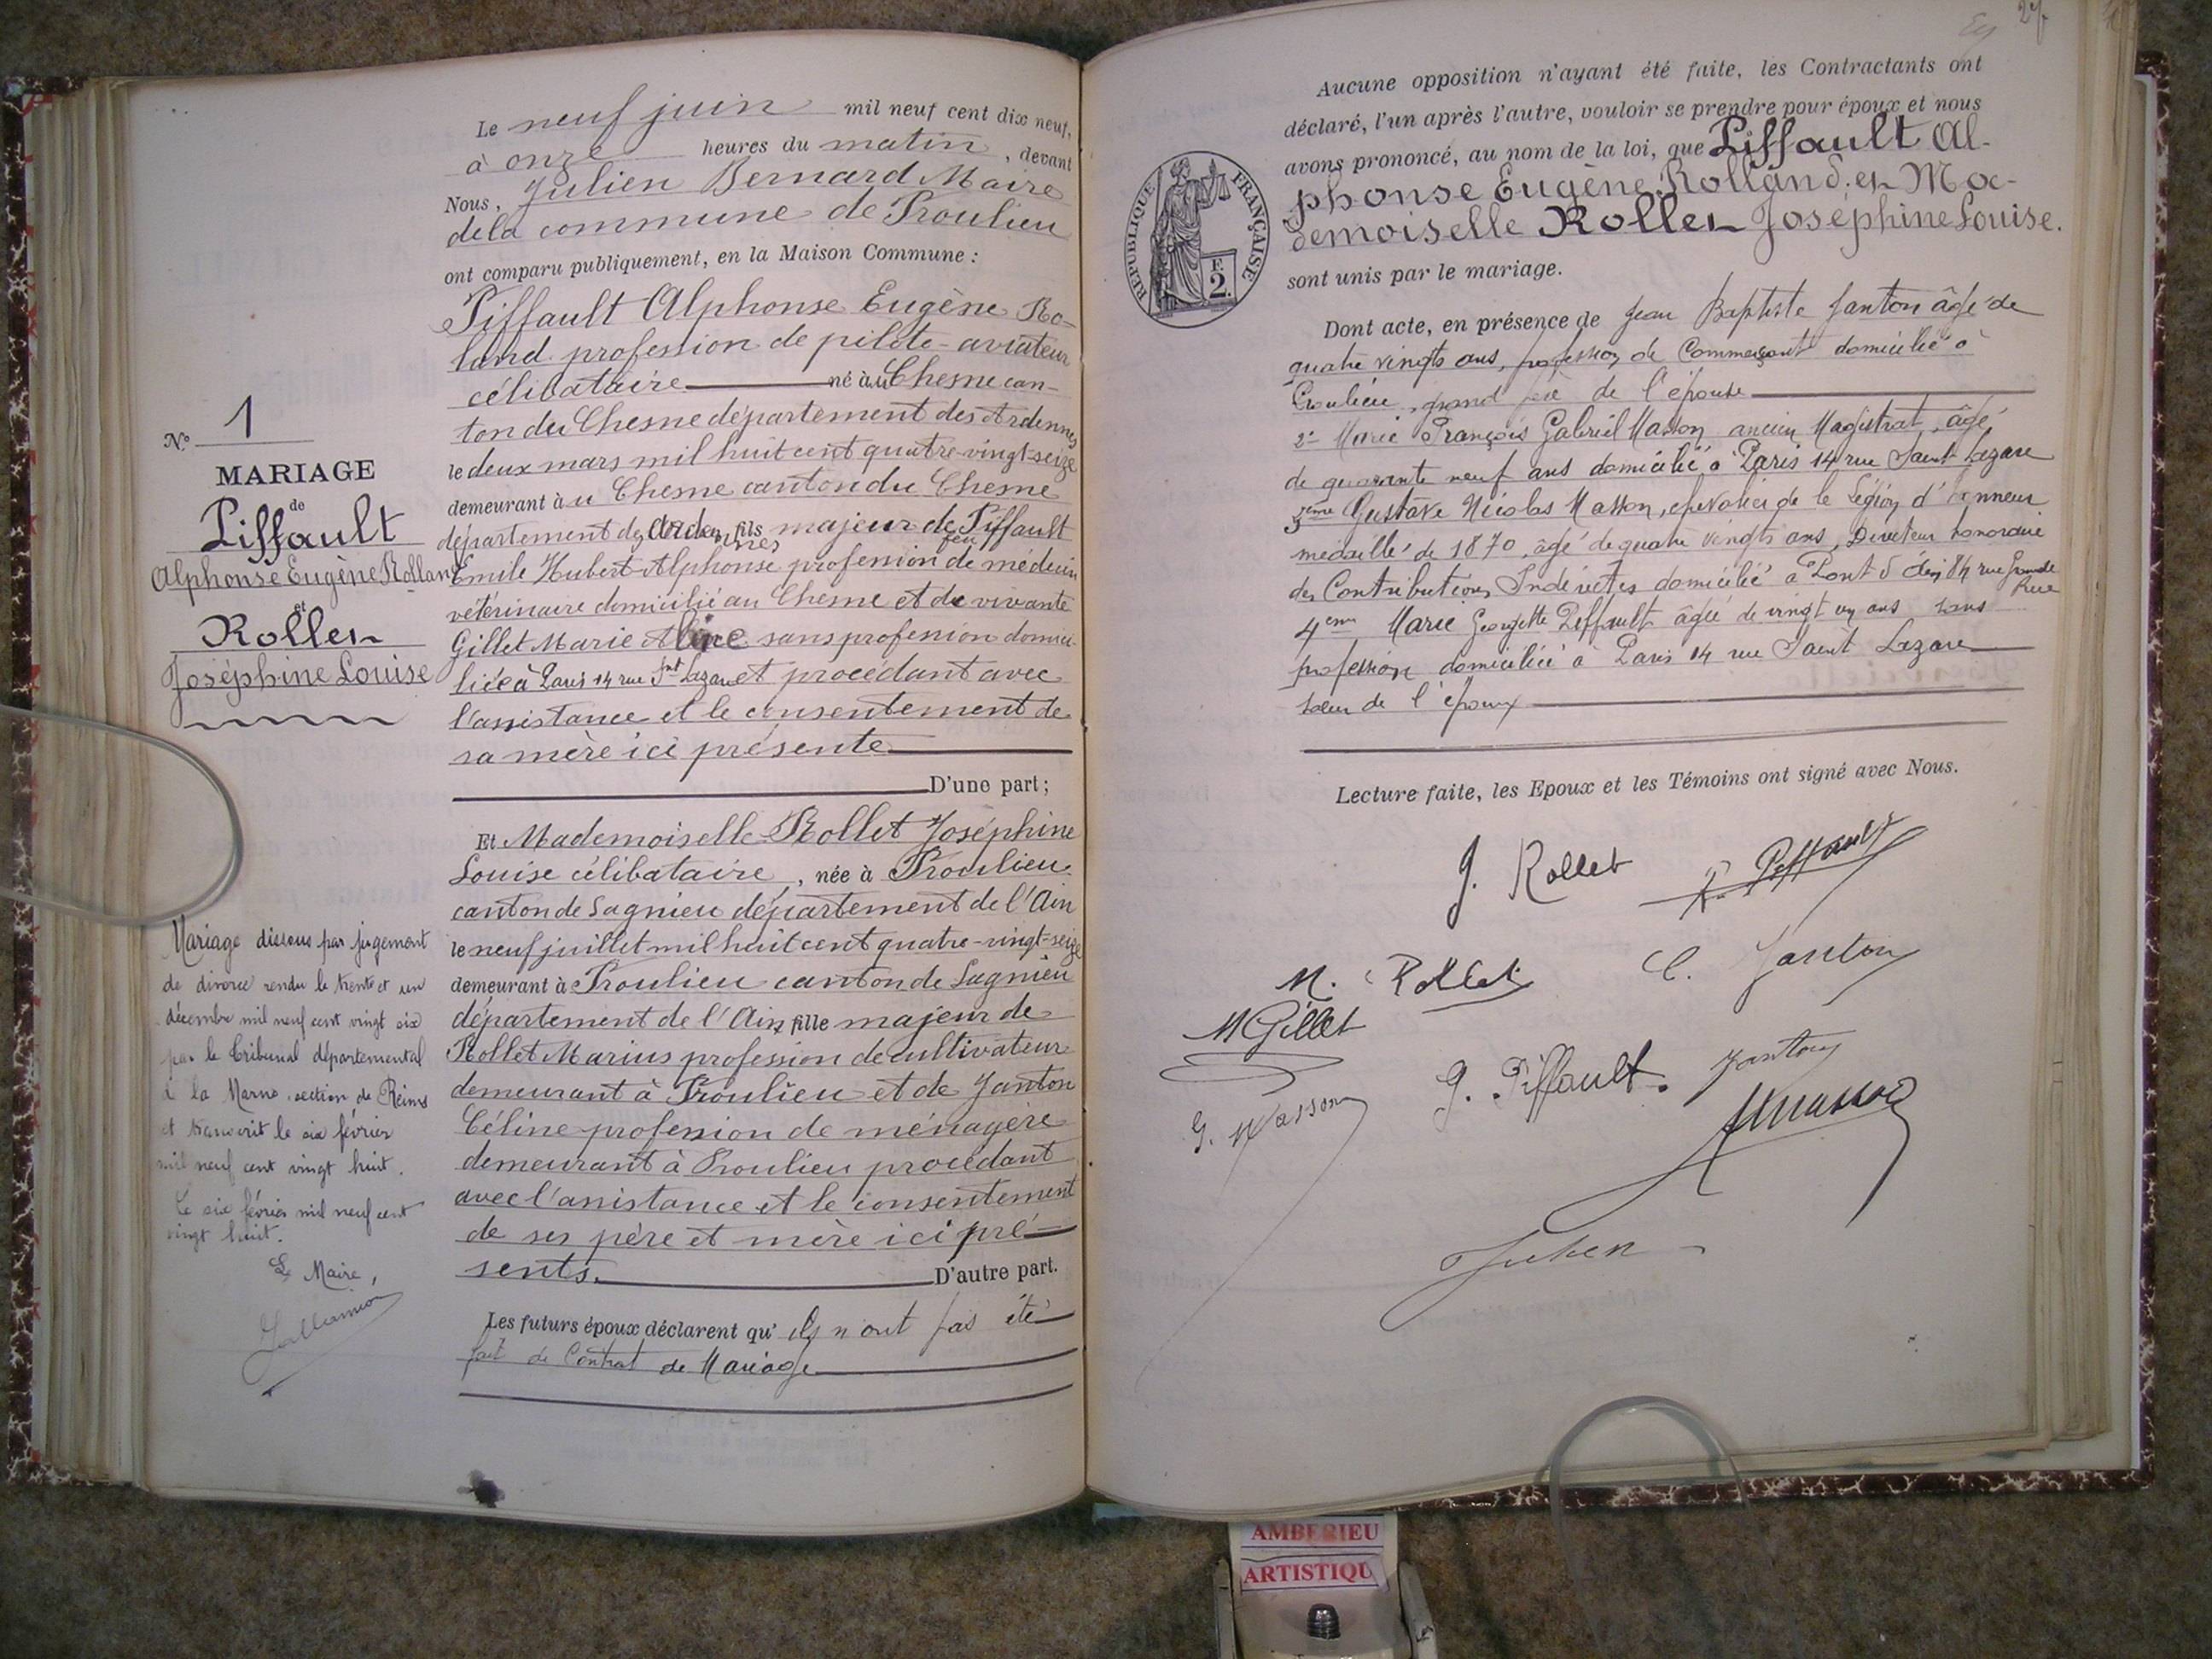 Le neuf juin mil neuf cent dix neuf,
à onze heures du matin, devant
Nous, Julien Bernard Maire
de la commune de Proulieu
ont comparu publiquement, en la Maison Commune :
Piffault Alphonse Eugène Ro-
land profession de pilote-aviateur
célibataire né à u Chesne can-
ton du Chesne département des Ardennes
le deux mars mil huit cent quatre-vingt-seize
demeurant à u Chesne canton du Chesne
département des Ardennes fils majeur de feu Piffault
Emile Hubert Alphonse profession de médecin
vétérinaire domicilié au Chesne et de vivante
Gillet Marie Aline sans profession domici-
liée à Paris 14 rue Snt Lazare et procédant avec
l'assistance et le consentement de
sa mère ici présente
D'une part ;
Et Mademoiselle Rollet Joséphine
Louise célibataire, née à Proulieu
canton de Lagnieu département de l'Ain
le neuf juillet mil huit cent quatre-vingt-seize
demeurant à Proulieu canton de Lagnieu
département de l'Ain fille majeur de
Rollet Marius profession de cultivateur
demeurant à Proulieu et de Janton
Céline profession de ménagère
demeurant à Proulieu procédant
avec l'assistance et le consentement
de ses père et mère ici pré-
sents.
D'autre part.
Les futurs époux déclarent qu'ils n'ont pas été
fait de Contrat de Mariage
N° 1
MARIAGE
de
Piffault
Alphonse Eugène Rolland
et
Rollet
Joséphine Louise
Mariage dissous par jugement
de divorce rendu le trente et un
décembre mil neuf cent vingt six
par le tribunal départemental
de la Marne, section de Reims
et transcrit le six février
mil neuf cent vingt huit.
Le six février mil neuf cent
vingt huit.
Le Maire,
27
Aucune opposition n'ayant été faite, les Contractants ont
déclaré, l'un après l'autre, vouloir se prendre pour époux et nous
avons prononcé, au nom de la loi, que Piffault Al-
phonse Eugène Rolland. et Ma-
demoiselle Rollet Joséphine Louise.
sont unis par le mariage.
RÉPUBLIQUE FRANÇAISE
F.
2.
Dont acte, en présence de Jean Baptiste Janton âgé de
quatre vingts ans, profession de Commerçant domicilié à
Proulieu, grand père de l'épouse
2° Marie François Gabriel Masson ancien Magistrat, âgé
de quarante neuf ans domicilié à Paris 14 rue Saint Lazare
3eme Gustave Nicolas Masson, chevalier de la Légion d'honneur
médaillé de 1870, âgé de quatre vingts ans, Directeur honoraire
des Contributions Indirectes domicilié à Pont d'Ain 84 rue Grande
Rue
4em Marie Georgette Piffault âgée de vingt un ans sans
profession domiciliée à Paris 14 rue Saint Lazare
soeur de l'époux
Lecture faite, les Epoux et les Témoins ont signé avec Nous.
J. Rollet R. Piffault
M. Rollet C. Janton
M Gillet
G. Piffault. Janton
G. Masson Masson
Julien
AMBERIEU
ARTISTIQU